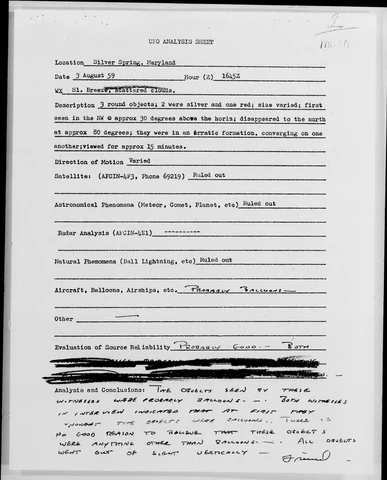 UFO ANALYSIS SHEET
Location Silver Spring, Maryland
Date 3 August 59 Hour (Z) 1645Z
WX Sl. Breeze, Scattered clouds.
Description 3 round objects; 2 were silver and one red; size varied; first
seen in the NW @ approx 30 degrees above the horiz; disappeared to the north
at approx 80 degrees; they were in an erratic formation, converging on one
another;viewed for approx 15 minutes.
Direction of Motion Varied
Satellite: (AFCIN-4F3, Phone 69219) Ruled out
Astronomical Phenomena (Meteor, Comet, Planet, etc) Ruled out
Radar Analysis (AFCIN-4E1) ----------
Natural Phenomena (Ball Lightning, etc) Ruled out
Aircraft, Balloons, Airships, etc. PROBABLY BALLOONS —
Other —
Evaluation of Source Reliability PROBABLY GOOD - BOTH
Analysis and Conclusions: THE OBJECTS SEEN BY THESE
WITNESSES WERE PROBABLY BALLOONS —. BOTH WITNESSES
IN INTERVIEW INDICATED THAT AT FIRST THEY
THOUGHT THE OBJECTS WERE BALLOONS. THERE IS
NO GOOD REASON TO BELIEVE THAT THESE OBJECTS
WERE ANYTHING OTHER THAN BALLOONS —. ALL OBJECTS
WENT OUT OF SIGHT VERTICALLY —